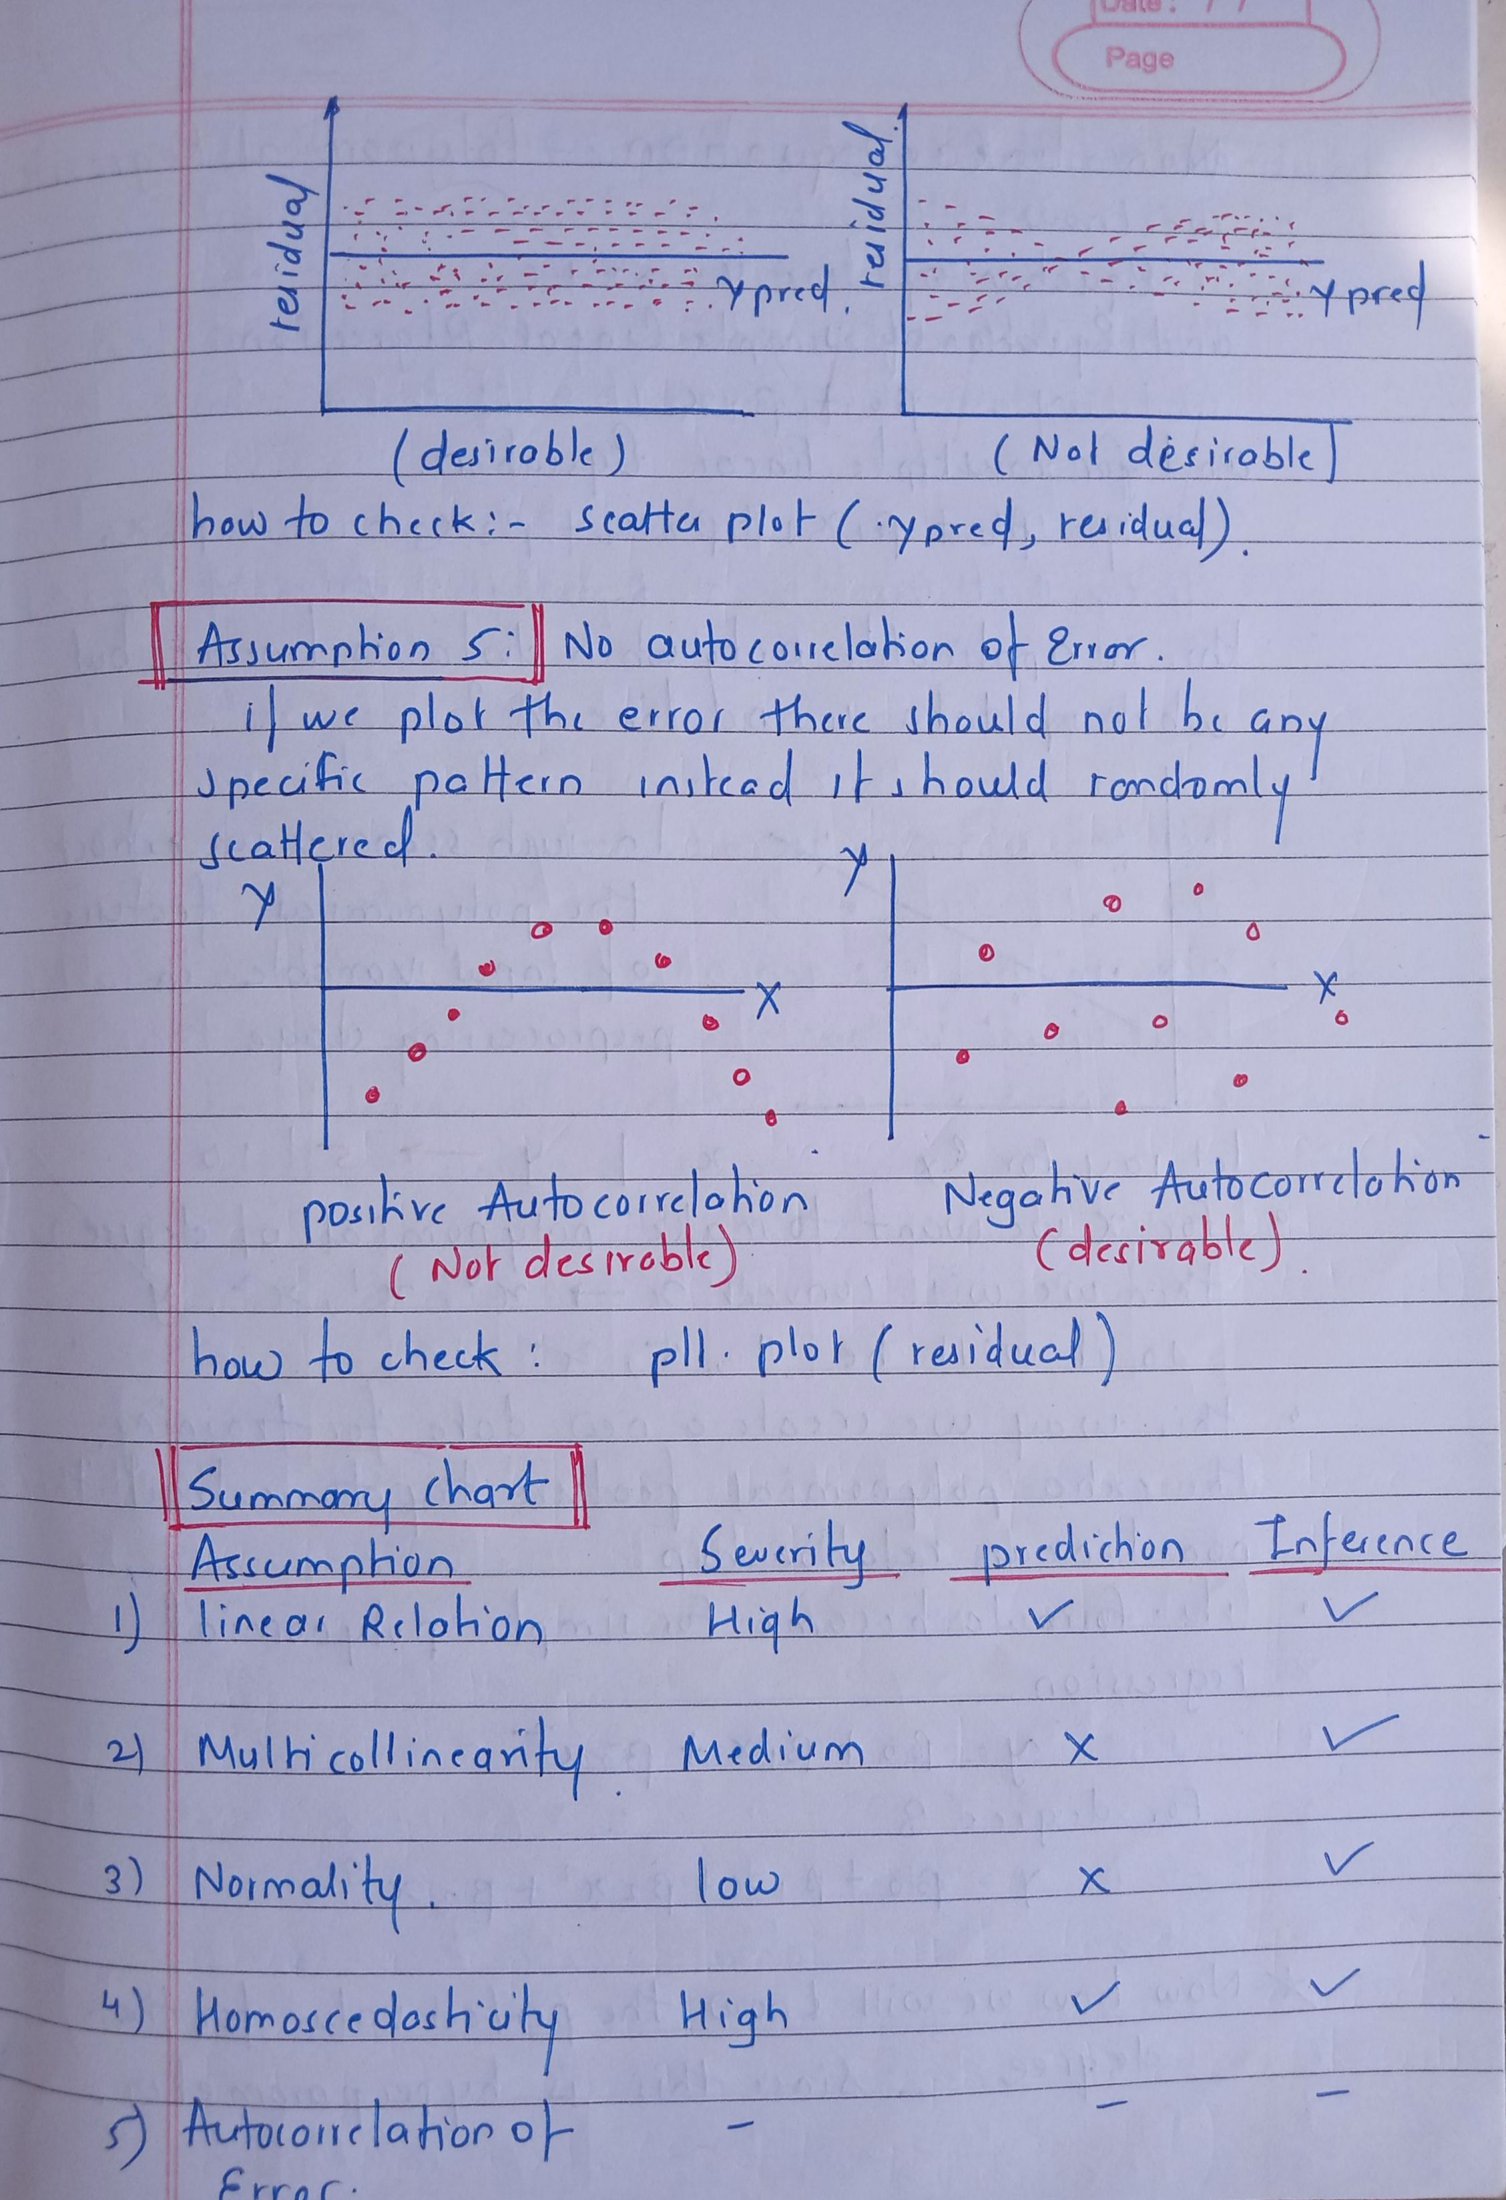 Date : / /
Page
residual
residual
Y pred.
Y pred
(desirable)
(Not desirable)
how to check:- scatter plot (ypred, residual).
Assumption 5: No autocorrelation of Error.
if we plot the error there should not be any
specific pattern instead it should randomly
scattered.
Y
Y
X
X
positive Autocorrelation
Negative Autocorrelation
(Not desirable)
(desirable).
how to check: pll. plot (residual)
Summary chart
Assumption Severity prediction Inference
1) linear Relation High ✓ ✓
2) Multicollinearity. Medium x ✓
3) Normality. low x ✓
4) Homoscedasticity High ✓ ✓
5) Autocorrelation of - - -
Error.